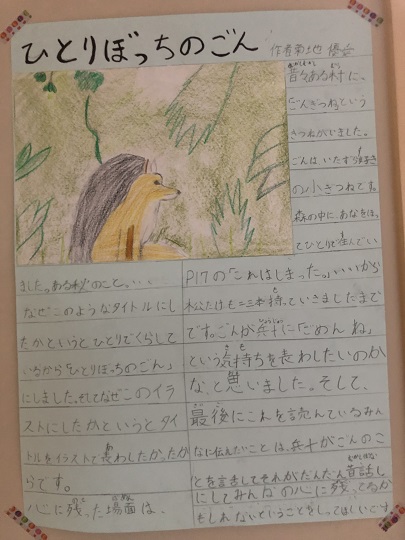 ひとりぼっちのごん
作者 菊地
昔々ある村に、
ごんきつねという
きつねがいました。
ごんは、いたずら好き
の小ぎつねです。
森の中に あなをほっ
てひとりで住んでい
ました。ある秋のこと、、、
なぜこのようなタイトルにし
たかというとひとりでくらして
いるから「ひとりぼっちのごん」
にしました。そしてなぜこのイラ
ストにしたかというとタイ
トルをイラストで表わしたかったか
らです。
心に残った場面は、
P17の「これはしまった。」いいから
松たけも二三本持っていきましたまで
です。ごんが兵十に「ごめんね」
という気持ちを表わしたいのか
な、と思いました。そして、
最後にこれを読んでいるみん
なに伝えたいことは、兵十がごんのこ
とを してそれがだんだん昔話し
にしてみんなの心に残ってるか
もしれないということをしってほしいです。